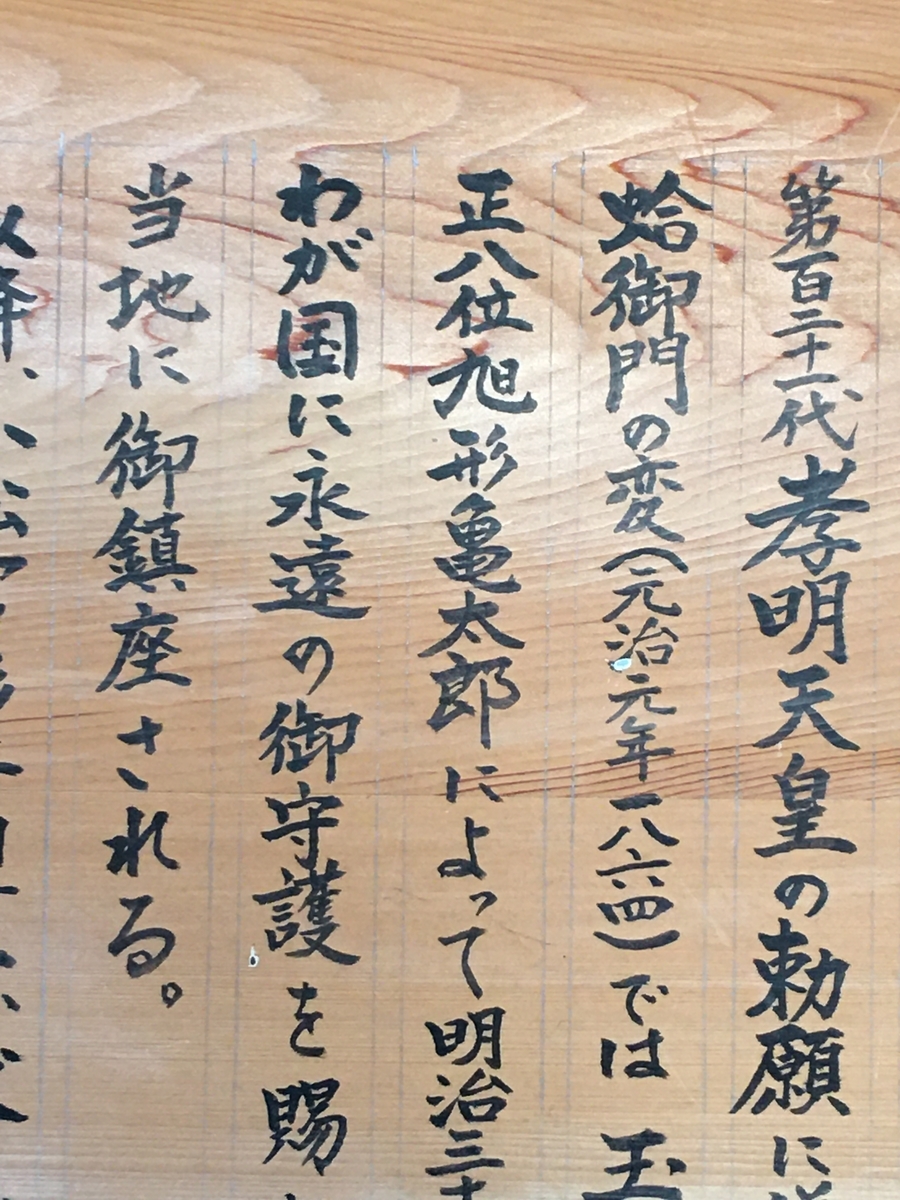 第百二十一代孝明天皇の勅願に
蛤御門の変（元治元年一八六四）では 玉
正八位旭形亀太郎によって明治三十
わが国に永遠の御守護を賜
当地に御鎮座される。
以降、